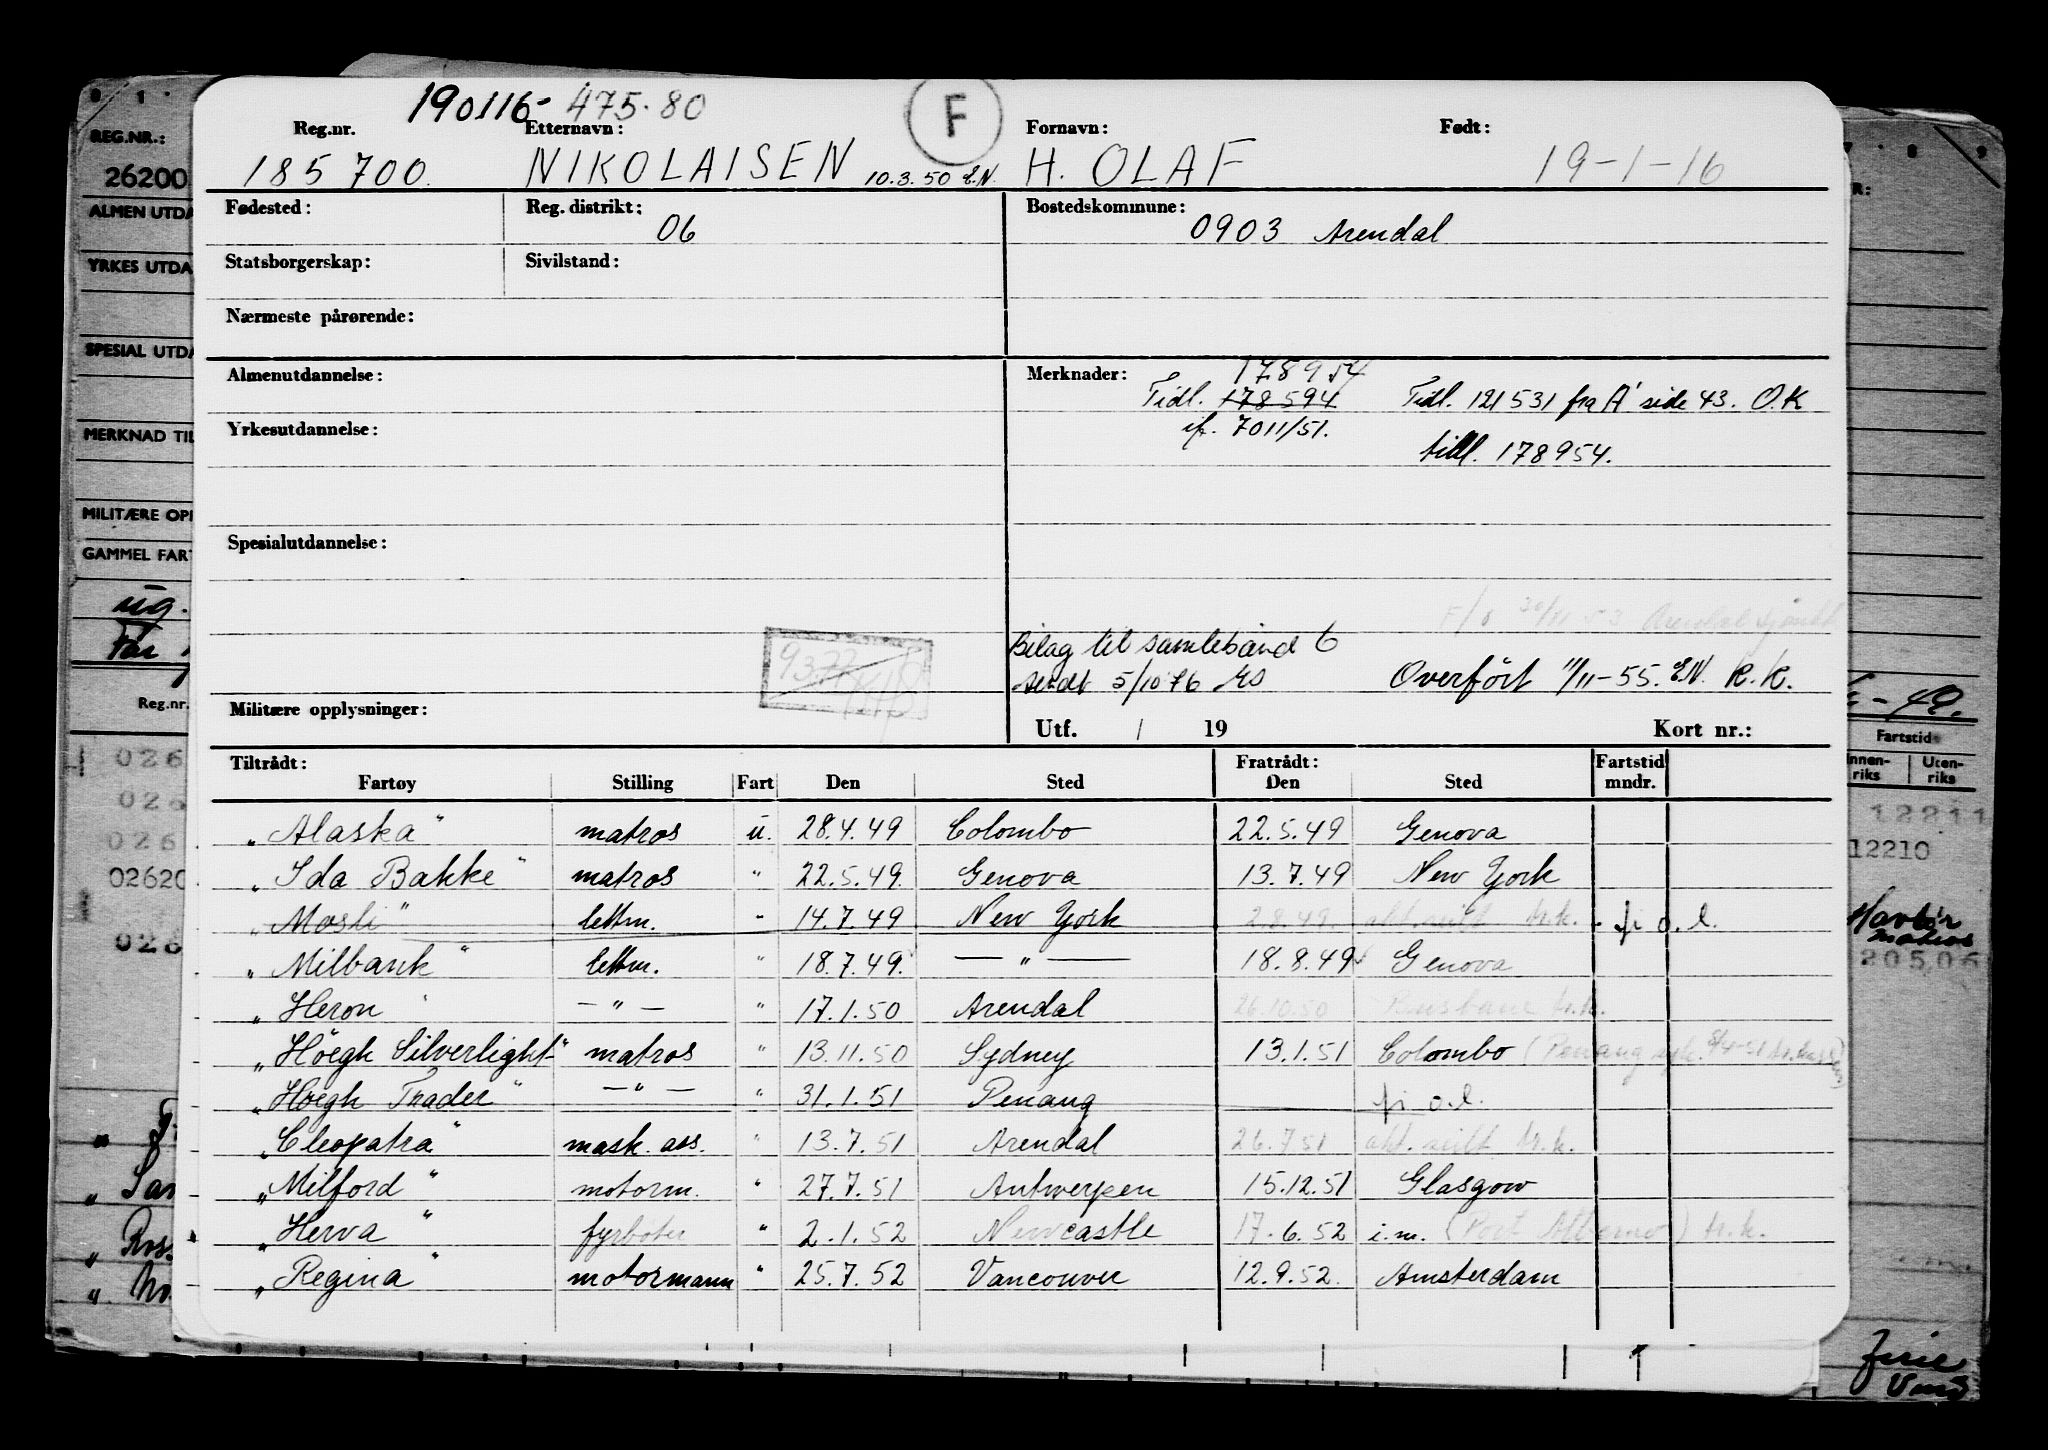 190116- 475.80
F
Reg.nr. Etternavn: Fornavn: Født:
185 700. NIKOLAISEN 10.3.50 E.N. H. OLAF 19-1-16
Fødested: Reg. distrikt: Bostedskommune:
06 0903 Arendal
Statsborgerskap: Sivilstand:
Nærmeste pårørende:
Almenutdannelse: Merknader: 178954
Tidl. 178594 Tidl. 121531 fra A' side 43. O.K
Yrkesutdannelse: 7011/51.
tidl. 178954.
Spesialutdannelse:
F/6 30/11 53 Arendal
Bilag til samlebånd 6
sendt 5/10 76 Overført 11/11-55. E.N. K.K.
9377
Militære opplysninger: Utf. / 19 Kort nr.:
Tiltrådt: Fratrådt: Fartstid
Fartøy Stilling Fart Den Sted Den Sted mndr.
"Alaska" matros u. 28.4.49 Colombo 22.5.49 Genova
"Ida Bakke" matros " 22.5.49. Genova 13.7.49 New York
"Mosli" lettm. " 14.7.49 New York 2.8.49. akt. seilt tr.k. fi o.l.
"Milbank" lettm. " 18.7.49. — " — 18.8.49 Genova
"Heron" — " — " 17.1.50 Arendal 26.10.50 Brisbane tr.k.
"Höegh Silverlight" matros " 13.11.50 Sydney 13.1.51 Colombo (Penang
"Höegh Trader" — " — " 31.1.51 Penang — fi o.l.
"Cleopatra" mask. ass. " 13.7.51 Arendal 26.7.51 akt. seilt tr.k.
"Milford" motorm. " 27.7.51 Antwerpen 15.12.51 Glasgow
"Herva" fyrbøter " 2.1.52 Newcastle 17.6.52 i.m. (Port ) tr.k.
"Regina" motormann " 25.7.52 Vancouver 12.9.52. Amsterdam
REG.NR.:
26200
ALMEN UTDA
YRKES UTDA
SPESIAL UTDA
MERKNAD TIL
MILITÆRE OPP
GAMMEL FART
ug.
Reg.nr.
026
026
026
02620
026
R:
-42.
Fartstid
Innenriks Utenriks
12211
12210
matros
20506